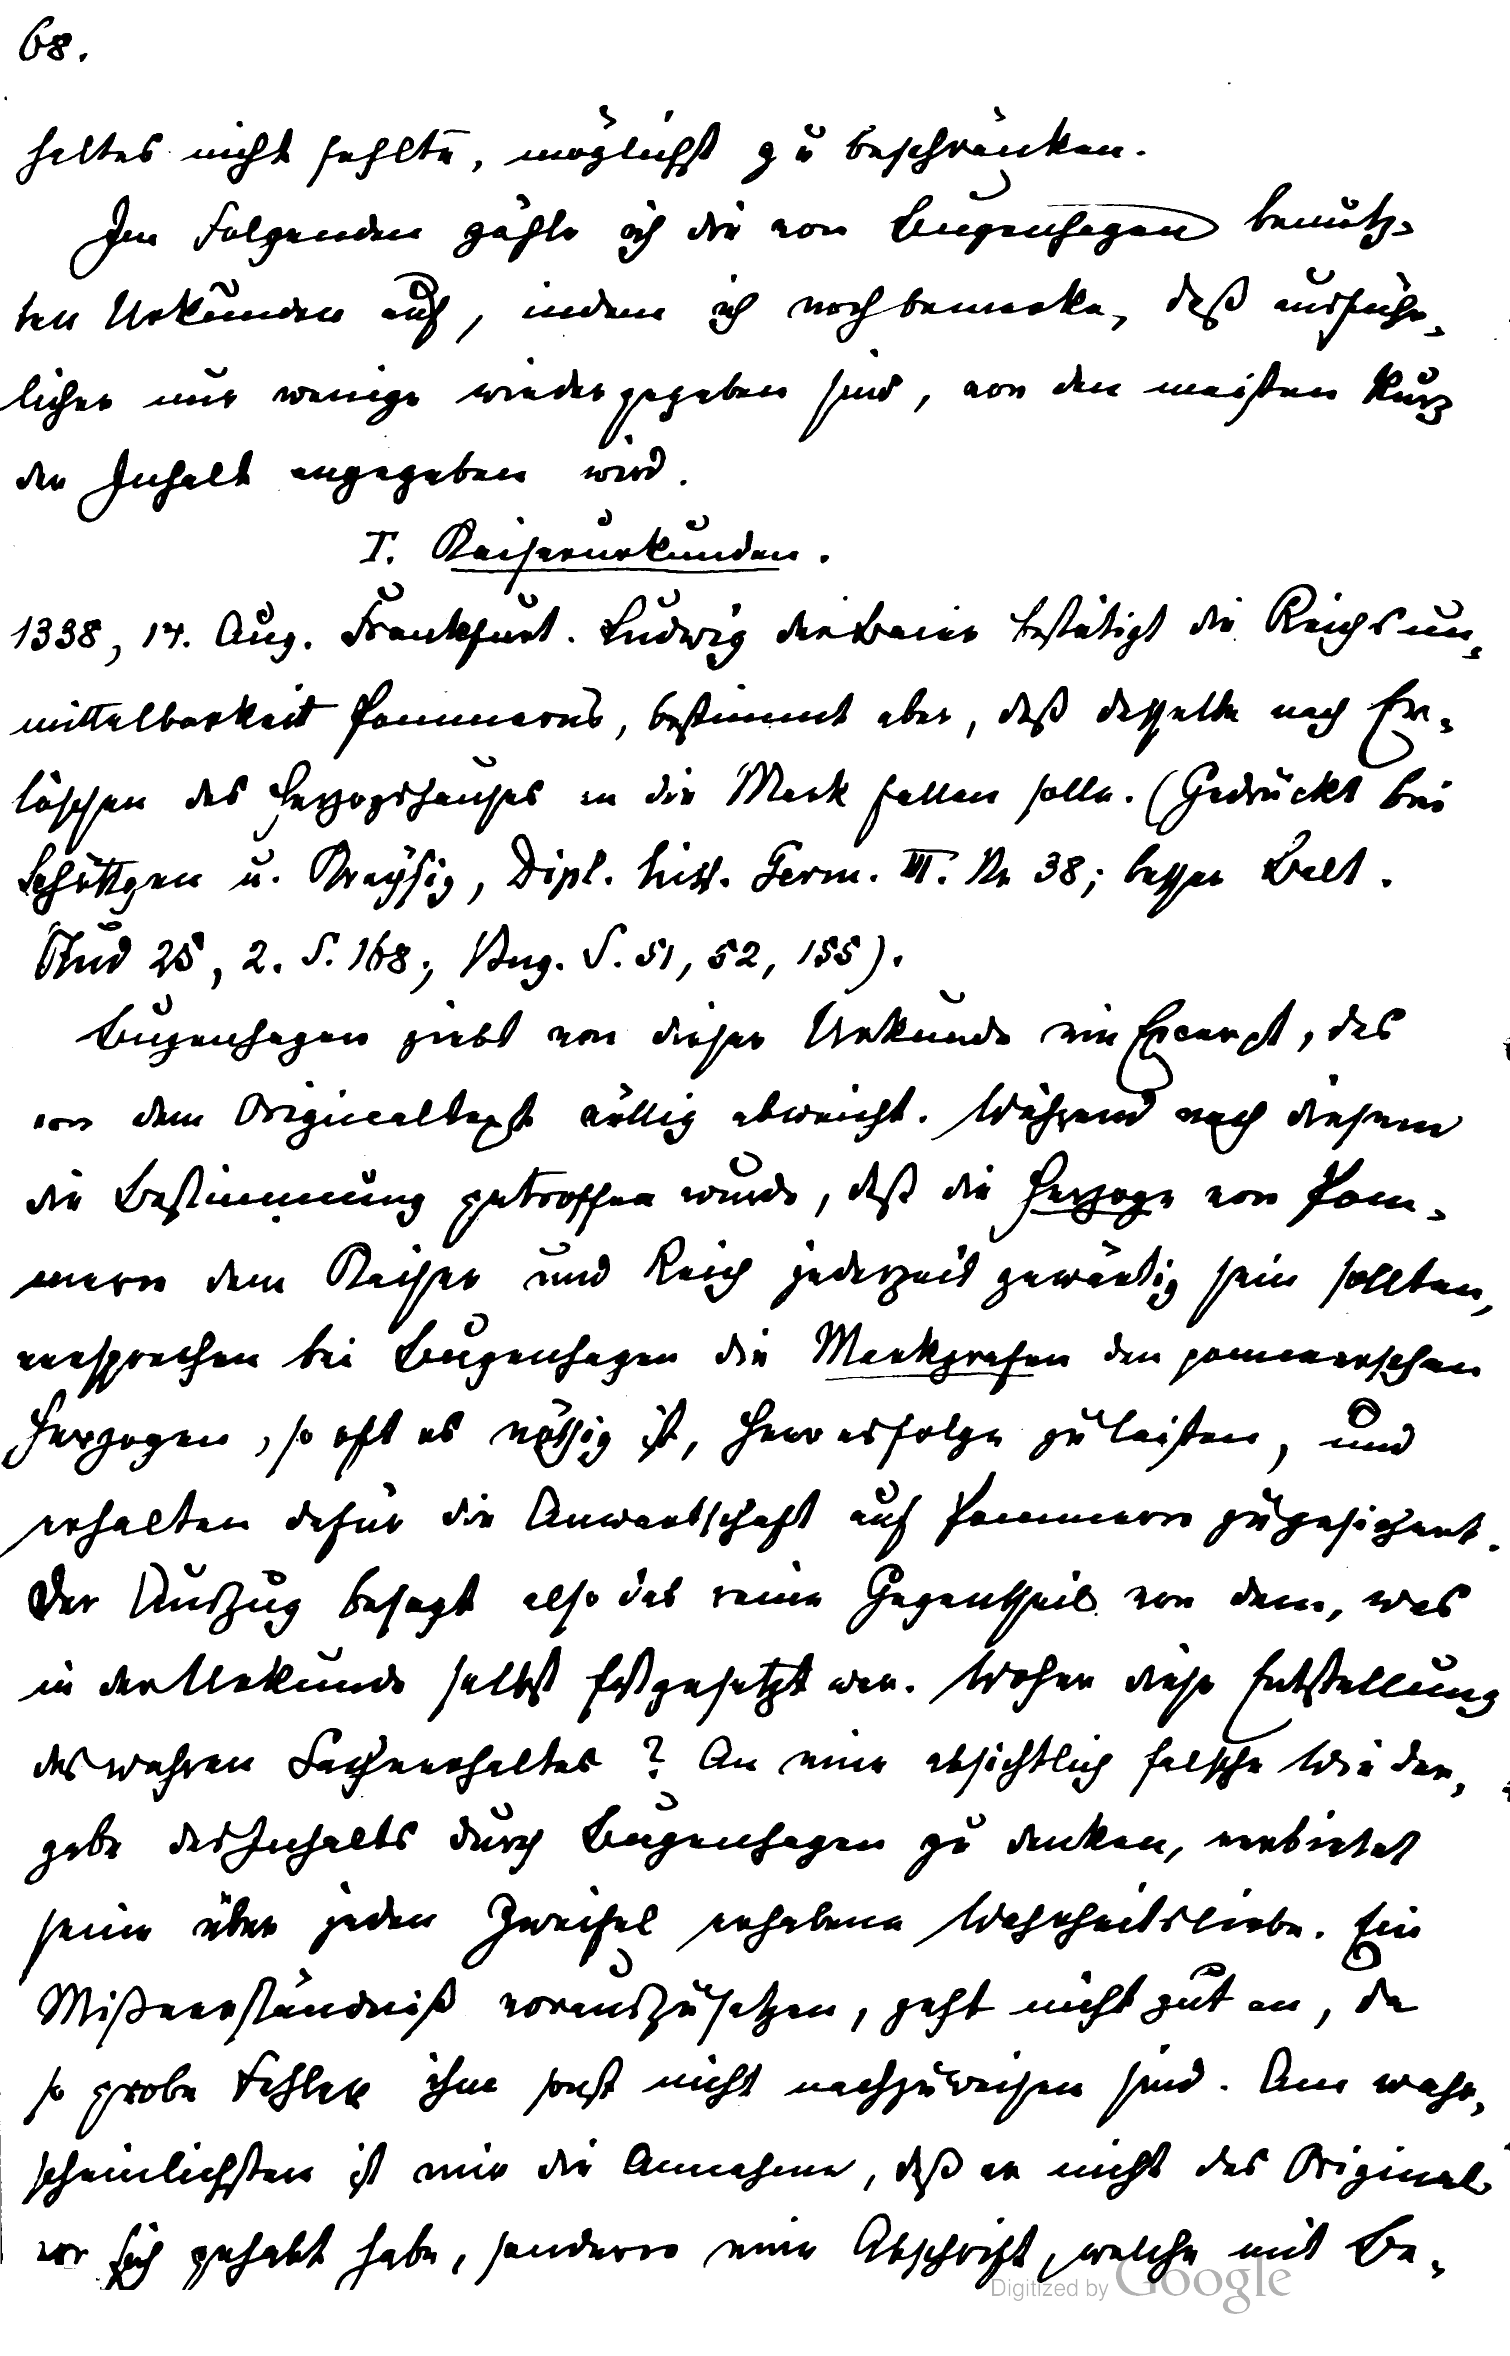 68.
haltes nicht fehlte, möglichst zu beschränken.
Im Folgenden zähle ich die von Bugenhagen benutz-
ten Urkunden auf, indem ich noch bemerke, daß ausführ-
licher nur wenige wiedergegeben sind, von den meisten kurz
der Inhalt angegeben wird.
I. Kaiserurkunden.
1338, 14. Aug. Frankfurt. Ludwig der Baier bestätigt die Reichsun-
mittelbarkeit Pommerns, bestimmt aber, daß dasselbe nach Er-
löschen des Herzogshauses an die Mark fallen solle. (Gedruckt bei
Schöttgen u. Kreysig, Dipl. hist. Germ. III. Nr 38; besser Balt.
Stud 25, 2. S. 168; Bug. S. 51, 52, 155).
Bugenhagen giebt von dieser Urkunde ein Excerpt, das
von dem Originaltext völlig abweicht. Während nach diesem
die Bestimmung getroffen wurde, daß die Herzoge von Pom-
mern dem Kaiser und Reich jederzeit gewärtig sein sollten,
versprechen bei Bugenhagen die Markgrafen den pommerschen
Herzogen, so oft es nöthig ist, Heeresfolge zu leisten, und
erhalten dafür die Anwartschaft auf Pommern zugesichert.
Der Auszug besagt also das reine Gegentheil von dem, was
in der Urkunde selbst festgesetzt war. Woher diese Entstellung
des wahren Sachverhaltes? An eine absichtlich falsche Wieder-
gabe des Inhalts durch Bugenhagen zu denken, verbietet
seine über jeden Zweifel erhabene Wahrheitsliebe. Ein
Mißverständniß vorauszusetzen, geht nicht gut an, da
so grobe Fehler ihm sonst nicht nachzuweisen sind. Am wahr-
scheinlichsten ist mir die Annahme, daß er nicht das Original
vor sich gehabt habe, sondern eine Abschrift, welche mit Be-
Digitized by Google